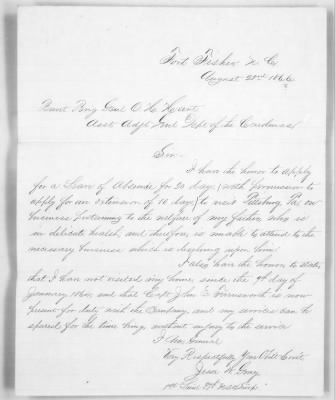 Fort Fisher N. C.
August 23rd 1866
Brvt Brig Genl O. H. Hart
Asst Adjt Genl Dept of the Carolinas
Sir
I have the honor to apply
for a Leave of Absence for 20 days (with permission to
apply for an extension of 10 days) to visit Pittsburg Pa. on
business pertaining to the welfare of my father who is
in delicate health, and therefore, is unable to attend to the
necessary business which is devolving upon him
I also have the honor to state,
that I have not visited my home, since the 9th day of
January 1864, and that Capt. John E. Farnsworth is now
present for duty with the Company, and my services can be
spared for the time being, without injury to the service
I Am General
Very Respectfully Your Obt Servt
Jesse W. Gray
1st Lieut 37th